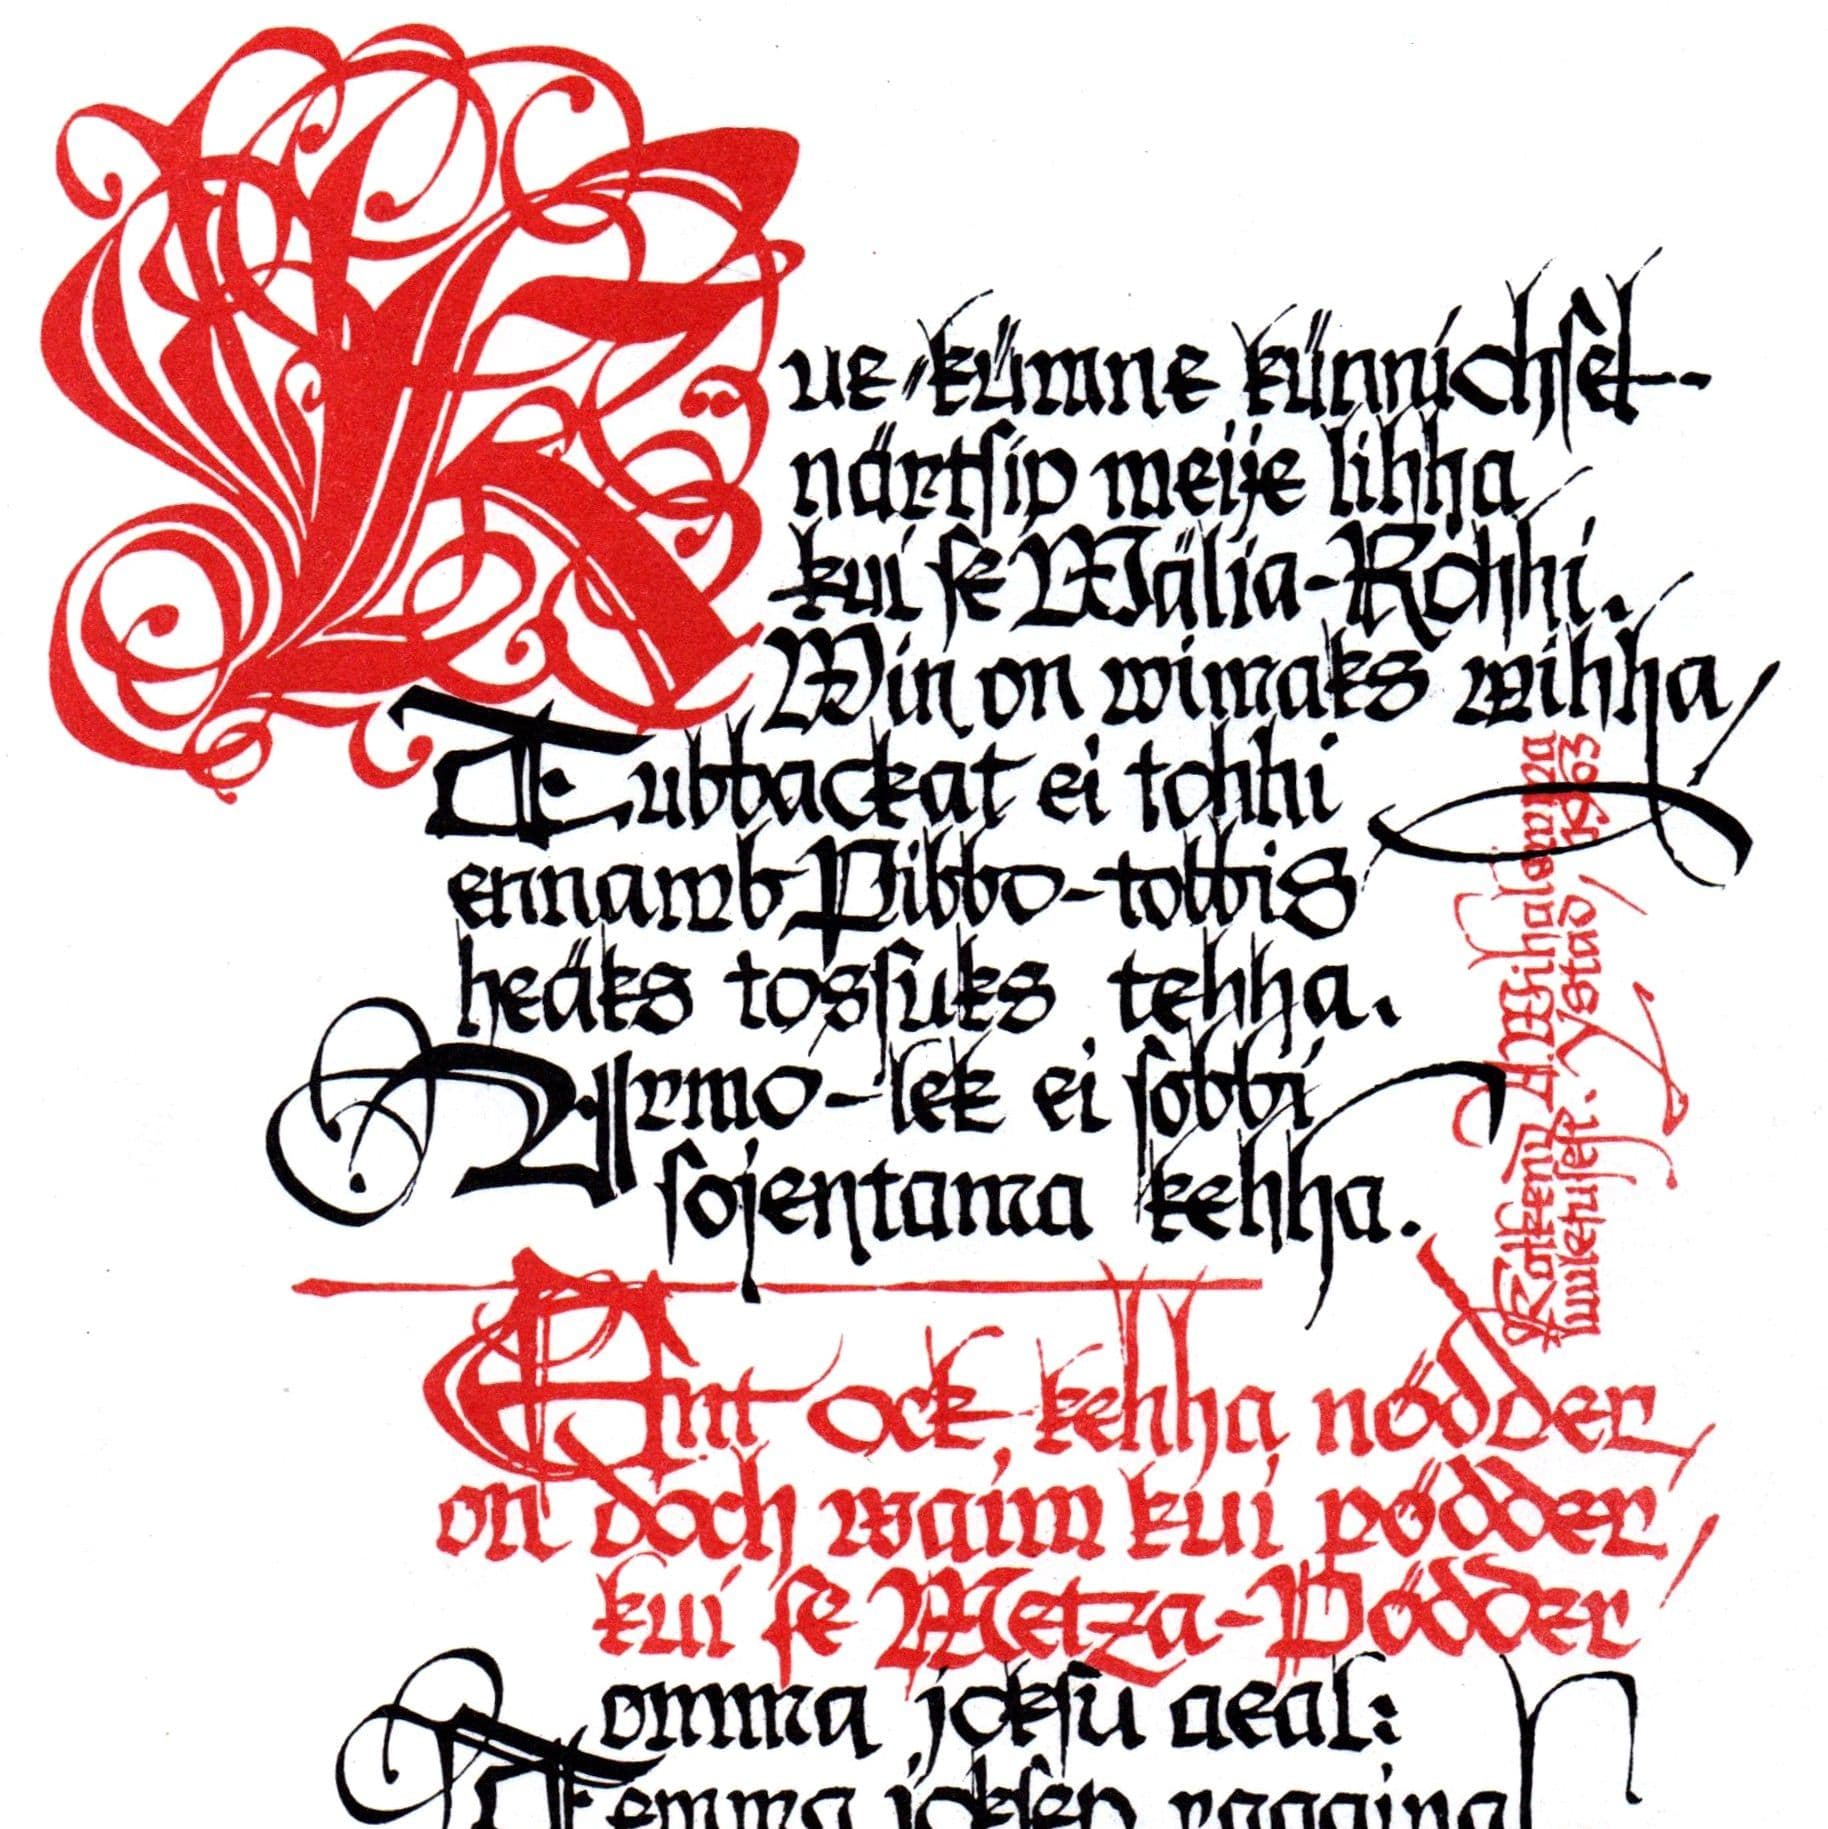 Kue kümne künnichsel-
närtsip meije lihha
kui se Wälja-Rohhi.
Win on wimaks wihha,
Tubbackat ei tohhi
ennamb Pibbo-tobbis
heäks tossuks tehha.
Armo-lek ei sobbi
sojentama kehha.
Ent ock, kehha nödder,
on doch waim kui pödder,
kui se Metza-Pödder
omma joksu aeal:
Temma joksep
A. Wihalemma
Ystad, 1963